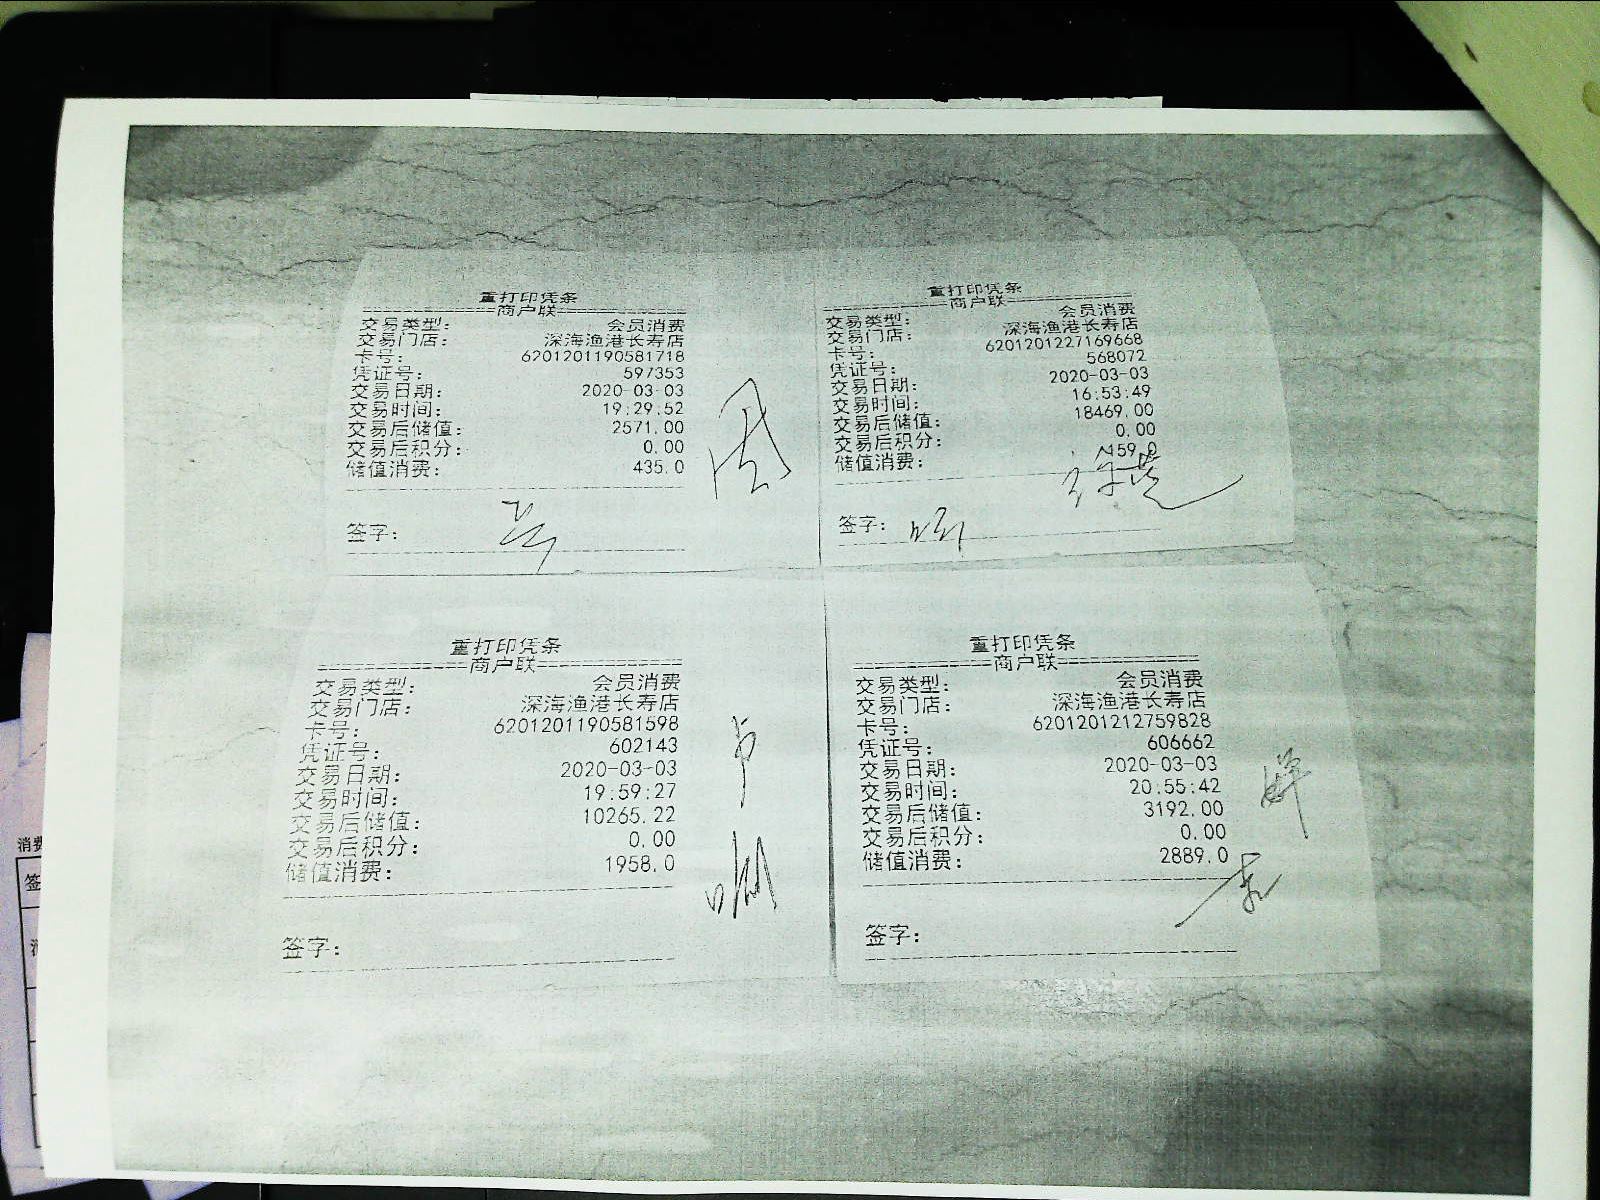 重打印凭条
============商户联============
交易类型： 会员消费
交易门店： 深海渔港长寿店
卡号： 6201201190581718
凭证号： 597353
交易日期： 2020-03-03
交易时间： 19:29:52
交易后储值： 2571.00
交易后积分： 0.00
储值消费： 435.0
签字：
重打印凭条
============商户联============
交易类型： 会员消费
交易门店： 深海渔港长寿店
卡号： 6201201227169668
凭证号： 568072
交易日期： 2020-03-03
交易时间： 16:53:49
交易后储值： 18469.00
交易后积分： 0.00
储值消费：
签字：
重打印凭条
============商户联============
交易类型： 会员消费
交易门店： 深海渔港长寿店
卡号： 6201201190581598
凭证号： 602143
交易日期： 2020-03-03
交易时间： 19:59:27
交易后储值： 10265.22
交易后积分： 0.00
储值消费： 1958.0
签字：
重打印凭条
============商户联============
交易类型： 会员消费
交易门店： 深海渔港长寿店
卡号： 6201201212759828
凭证号： 606662
交易日期： 2020-03-03
交易时间： 20:55:42
交易后储值： 3192.00
交易后积分： 0.00
储值消费： 2889.0
签字：
消费
签